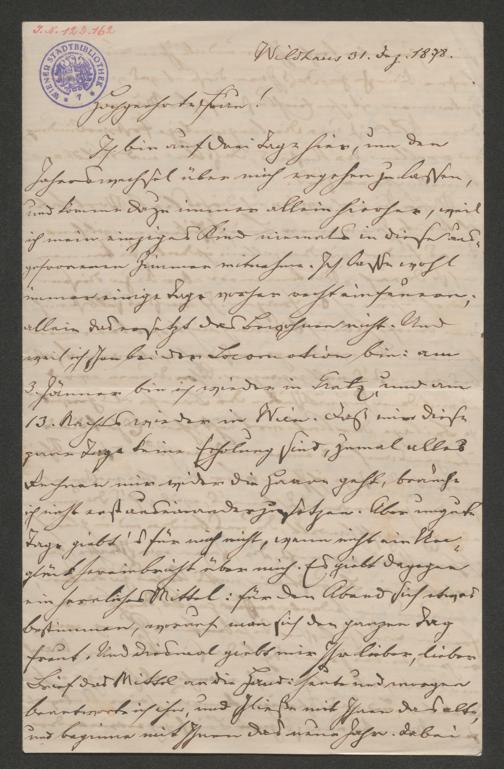 J.N. 123.162
WIENER STADTBIBLIOTHEK
Wildhaus 31. Dez. 1878.
Hochgeehrteste Frau!
Ich bin auf drei Tage hier, um den
Jahreswechsel über mich ergehen zu lassen,
und komme dazu immer allein hierher, weil
ich mein einziges Kind niemals in diese aus-
gefrorenen Zimmer mitnehme. Ich lasse wohl
immer einige Tage vorher recht einfeuern;
allein das ersetzt das Bewohnen nicht. Und
weil ich schon bei der Locomotion bin: am
3. Jänner bin ich wieder in Gratz, und am
13. Nachts wieder in Wien. Daß mir diese
paar Tage keine Erholung sind, zumal alles
Rechnen mir wider die Haare geht, brauche
ich nicht erst auseinanderzusetzen. Aber ungute
Tage giebt's für mich nicht, wenn nicht ein Un-
glück hereinbricht über mich. Es giebt dagegen
ein herrliches Mittel: für den Abend sich etwas
bestimmen, worauf man sich den ganzen Tag
freut. Und diesmal giebt mir Ihr lieber, lieber
Brief das Mittel an die Hand: heute und morgen
beantworte ich ihn, und schließe mit Ihnen das alte,
und beginne mit Ihnen das neue Jahr. Dabei